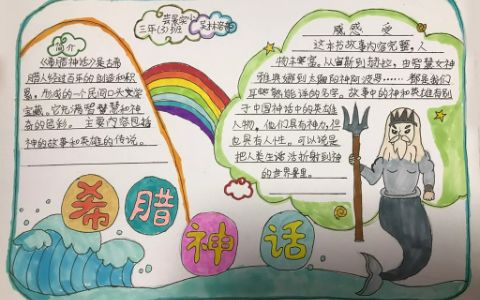 简介
《希腊神话》是古希
腊人经过百年的创造和积
累，形成的一个民间口头文学
宝藏。它充满智慧和神
奇的色彩。主要内容包括
神的故事和英雄的传说。
三年(3)班
感受
这本书故事内容完整，人
物丰富。从宙斯到赫拉，由智慧女神
雅典娜到太阳神阿波罗……都是我们
耳熟能详的名字。故事中的神和英雄有别
于中国神话中的英雄
人物，他们具有神力，但
也具有人性。可以说是
把人类生活折射到神
的世界里。
希腊神话